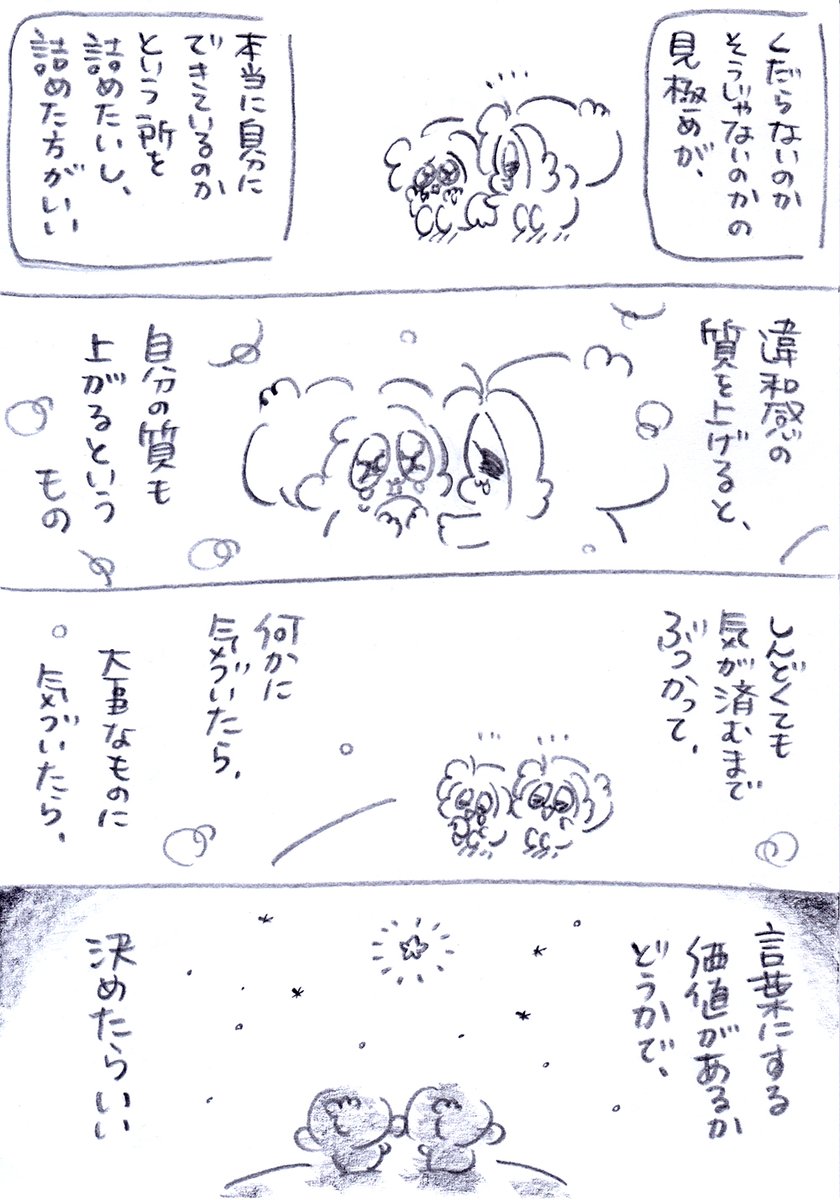 くだらないのか
そうじゃないのかの
見極めが、
本当に自分に
できているのか
という所を
詰めたいし、
詰めた方がいい
違和感の
質を上げると、
自分の質も
上がるという
もの
しんどくても
気が済むまで
ぶつかって、
何かに
気づいたら、
大事なものに
気づいたら、
言葉にする
価値があるか
どうかで、
決めたらいい